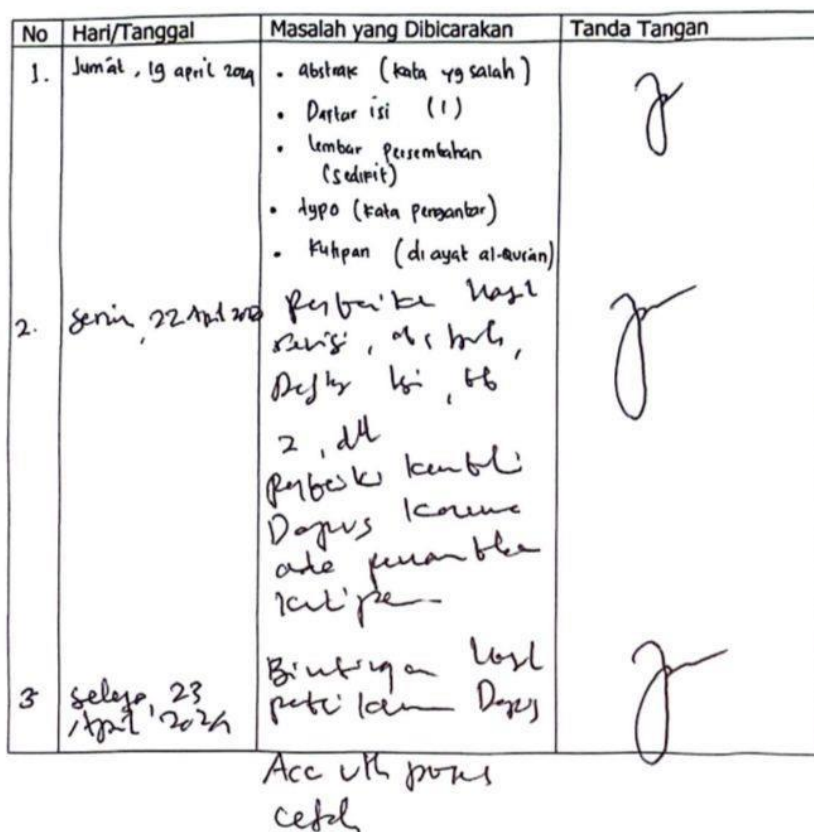 No Hari/Tanggal Masalah yang Dibicarakan Tanda Tangan
1. Jum'at, 19 april 2024 • abstrak (kata yg salah)
• Daftar isi (1)
• lembar persembahan
(sedikit)
• typo (kata pengantar)
• Kutipan (di ayat al-Qur'an)
2. Senin, 22 April Perbaiki hasil
revisi, abstrak,
Daftar Isi, bb
2, dll
Perbaiki kembali
Dapus karena
ada penambahan
kutipan
3 Selasa, 23 Bimbingan hasil
April 2024 perbaikan Dapus
Acc utk proses
cetak